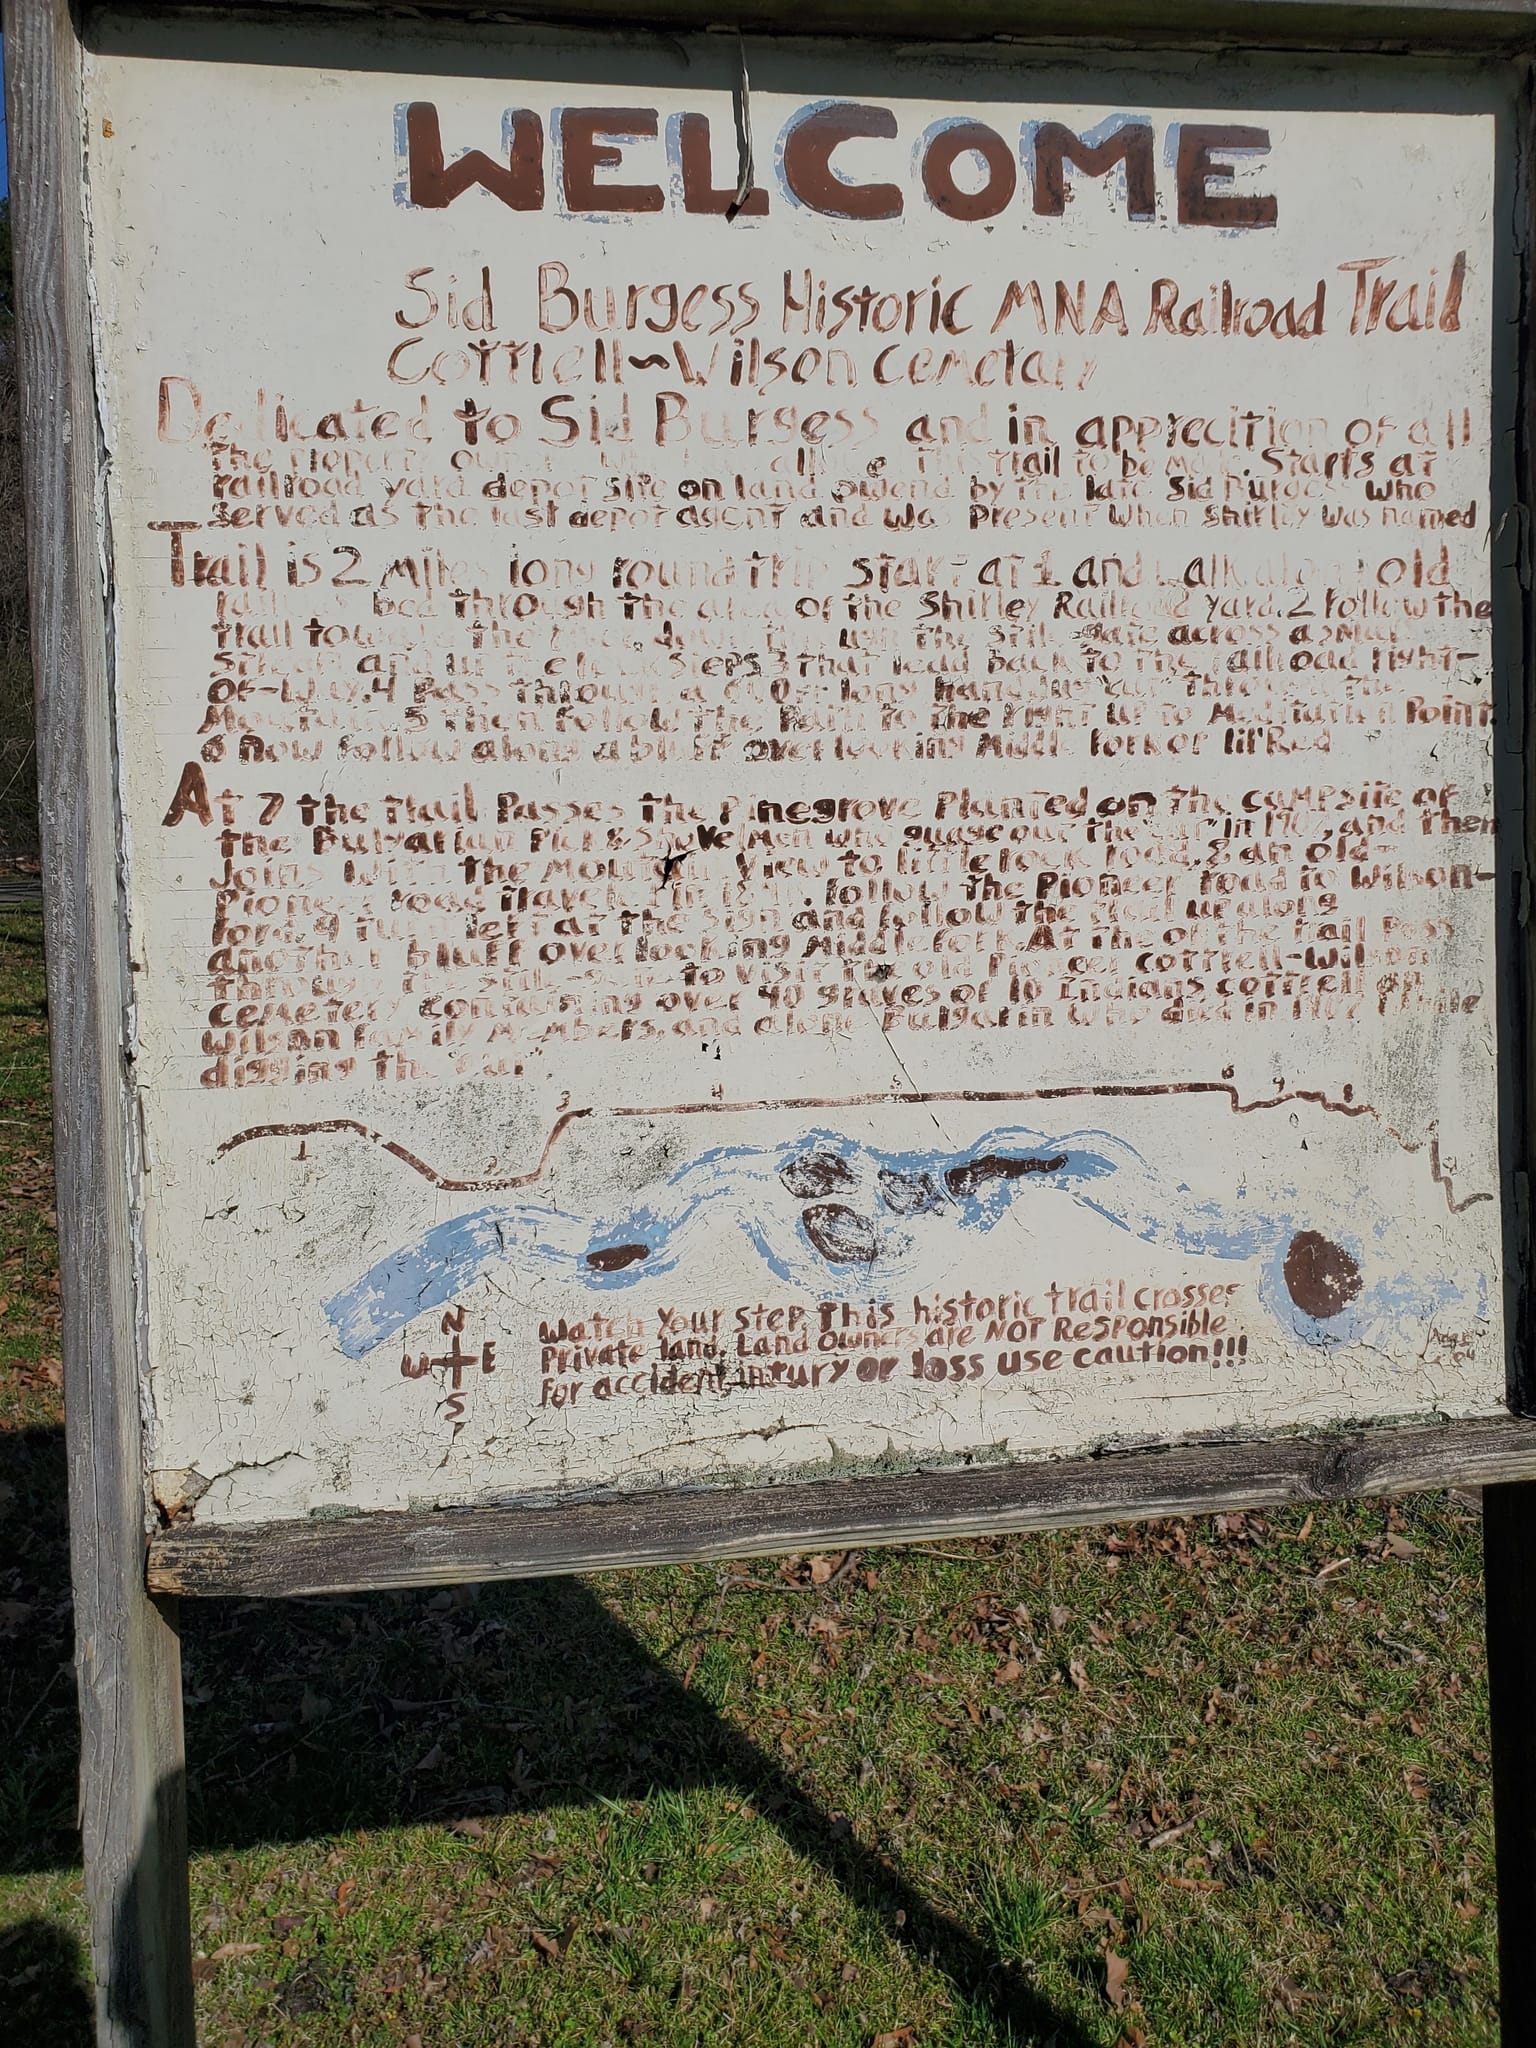 WELCOME
Sid Burgess Historic MNA Railroad Trail
Cottrell~Wilson Cemetary
Dedicated to Sid Burgess and in apprecition of all
the property this trail to be made. Starts at
railroad yard depot site on land owend by the late Sid Burgess who
served as the last depot agent and was present when Shirley was named
Trail is 2 Miles long round trip start at 1 and walk along old
bed through the area of the Shirley Railroad yard. 2 Follow the
trail down through the gate across a small
stream and up the rock steps 3 that lead back to the railroad right-
of-way. 4 Pass through a long hand dug cut through the
Mountain. 5 then follow the Path to the right up to Meditation Point.
6 now follow along a bluff over looking Middle Fork or lil'Red
At 7 the trail Passes the Pinegrove Planted on the campsite of
the Bulgarian Pick & Shovel Men who out the "cut" in 1907, and then
Joins with the Mountain View to little rock road. 8 an old-
Pioneer road traveled in . follow the Pioneer road to Wilson-
ford. 9 turn left at the sign and follow the trail up along
another bluff over looking Middle fork. At the of the trail Pass
through the to visit the old Pioneer Cottrell-Wilson
cemetery containing over 40 graves of 10 Indians cottrell
Wilson family Members, and alone Bulgarin who died in 1907 while
digging the "Cut"
1 2 3 4 5 6 7 8
N
W E
S
Watch Your Step. This historic trail crosses
Private land. Land Owners are NOT Responsible
For accident, or loss use caution!!!